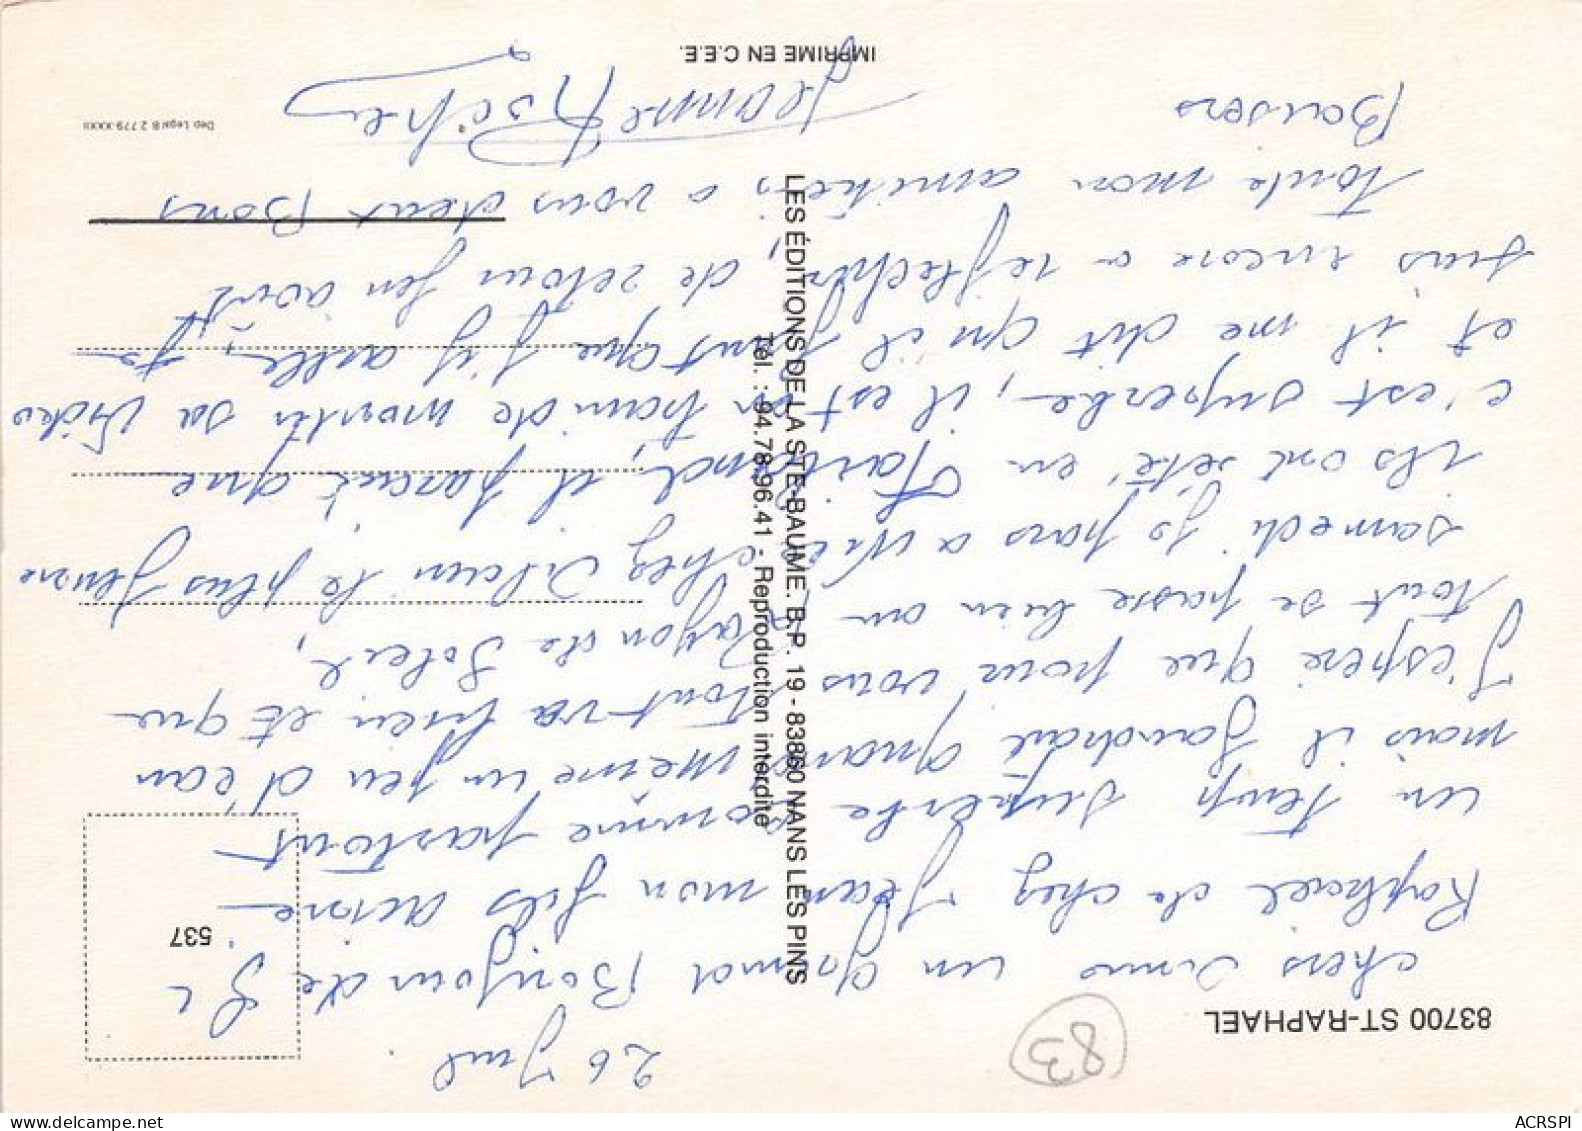 26 Juil.
chers Amis un grand Bonjour de St
Raphael de chez Jean mon fils acisne
un temp superbe comme partout
mais il faudrait quand meme un peu d'eau
J'espere que pour vous tout va bien et que
tout se passe bien au Rayon de Soleil,
samedi je pars a chez le plus jeune
ils ont été en il parait que
c'est superbe, il est en train de monter sa Video
et il me dit qu'il faut que j'y aille, je
suis encore a reflechir, de retour fin août
toute mon amitié, a vous deux Bons
Baisers
Jeanne
83700 ST-RAPHAEL
83
537
LES ÉDITIONS DE LA STE-BAUME. B.P. 19 - 83860 NANS LES PINS
Tél. : 94.78.96.41 - Reproduction interdite
IMPRIME EN C.E.E.
Dep Legal 8 2.779-XXXII
ACRSPI